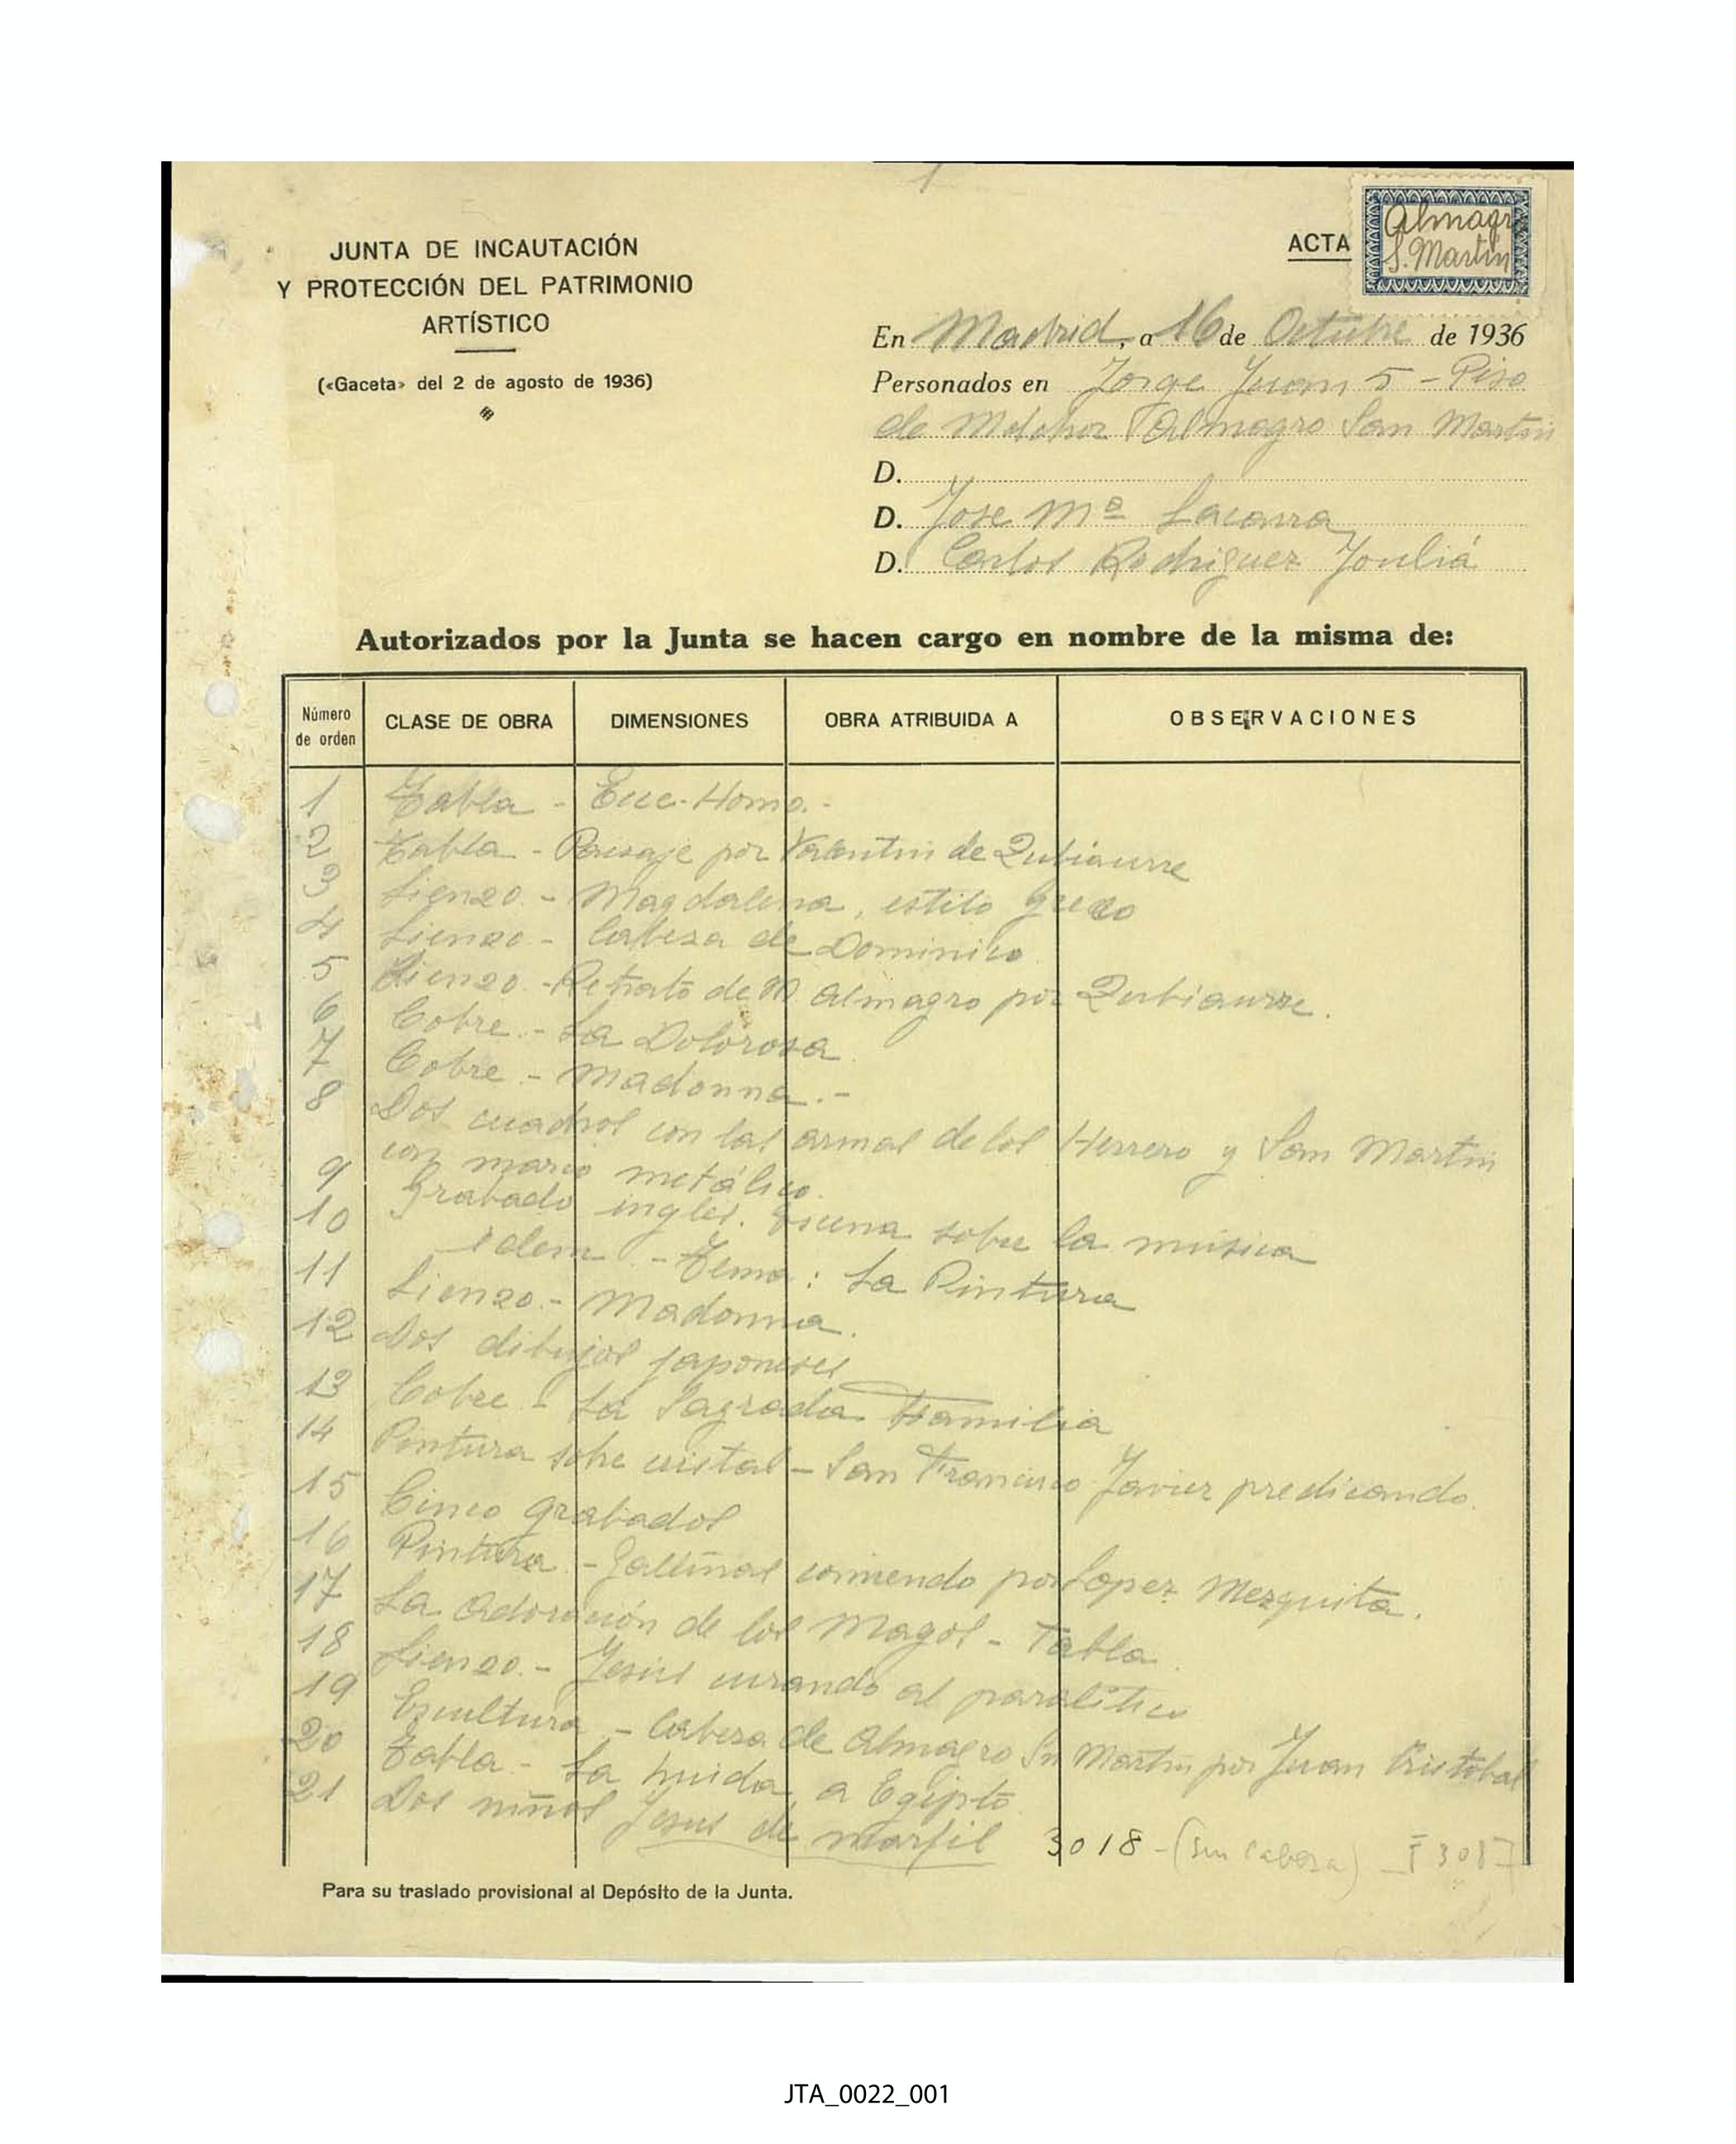 JUNTA DE INCAUTACIÓN
Y PROTECCIÓN DEL PATRIMONIO
ARTÍSTICO
(«Gaceta» del 2 de agosto de 1936)
ACTA
Almagro
S. Martín
En Madrid, a 16 de Octubre de 1936
Personados en Jorge Juan 5 - Piso
de Melchor Almagro San Martin
D.
D. Jose Mª Lacarra
D. Carlos Rodriguez Jouliá
Autorizados por la Junta se hacen cargo en nombre de la misma de:
Número de orden CLASE DE OBRA DIMENSIONES OBRA ATRIBUIDA A OBSERVACIONES
1 Tabla - Ecce-Homo.-
2 Tabla - Paisaje por Valentin de Zubiaurre
3 Lienzo. - Magdalena, estilo Greco
4 Lienzo - Cabeza de Dominico
5 Lienzo. - Retrato de M. Almagro por Zubiaurre.
6 Cobre. - La Dolorosa
7 Cobre. - Madonna. -
8 Dos cuadros con las armas de los Herrero y San Martin
con marco metálico.
9 Grabado ingles. Escena sobre la música
10 idem. - Tema: La Pintura
11 Lienzo. - Madonna.
12 Dos dibujos japoneses
13 Cobre - La Sagrada Familia
14 Pintura sobre cristal - San Francisco Javier predicando.
15 Cinco grabados
16 Pintura - Gallinas comiendo por Lopez Mezquita.
17 La Adoración de los Magos - Tabla.
18 Lienzo. - Jesús curando al paralítico
19 Escultura - Cabeza de Almagro Sn Martin por Juan Cristobal
20 Tabla - La huida a Egipto
21 Dos niños Jesus de marfil 3018 - (sin cabeza)
Para su traslado provisional al Depósito de la Junta.
JTA_0022_001